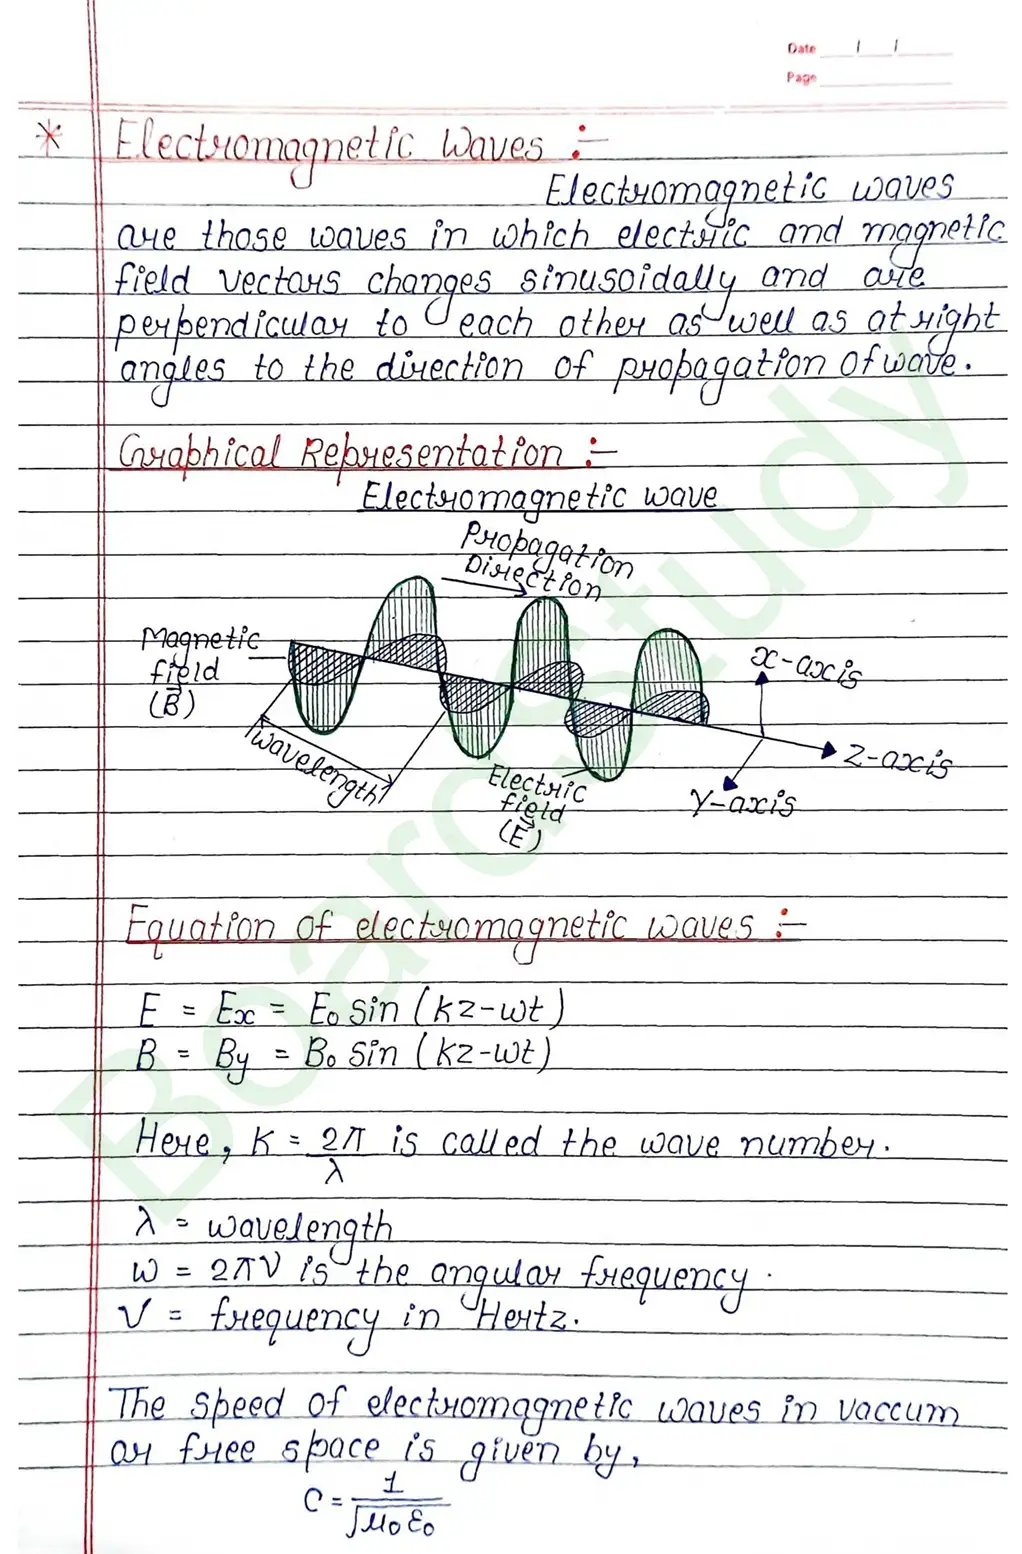 Date
Page
* Electromagnetic Waves :-
Electromagnetic waves
are those waves in which electric and magnetic
field vectors changes sinusoidally and are
perpendicular to each other as well as at right
angles to the direction of propagation of wave.
Graphical Representation :-
Electromagnetic wave
Propagation
Direction
Magnetic
field
(B⃗)
x-axis
z-axis
wavelength
Electric
field
(E⃗)
Y-axis
Equation of electromagnetic waves :-
E = Ex = E₀ sin (kz-wt)
B = By = B₀ sin (kz-wt)
Here, K = 2π/λ is called the wave number.
λ = wavelength
w = 2πν is the angular frequency.
ν = frequency in Hertz.
The speed of electromagnetic waves in vaccum
or free space is given by,
C = 1/√μ₀ε₀
BoardStudy